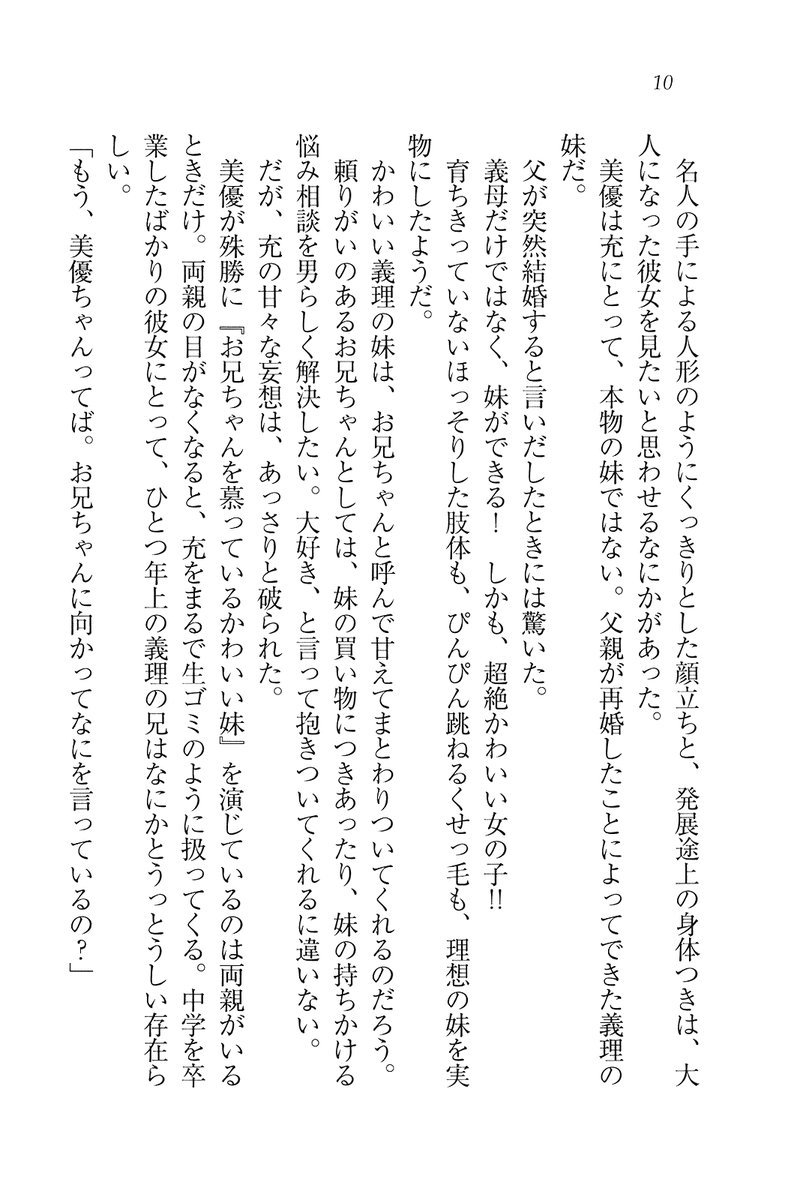 10
名人の手による人形のようにくっきりとした顔立ちと、発展途上の身体つきは、大
人になった彼女を見たいと思わせるなにかがあった。
美優は充にとって、本物の妹ではない。父親が再婚したことによってできた義理の
妹だ。
父が突然結婚すると言いだしたときには驚いた。
義母だけではなく、妹ができる！　しかも、超絶かわいい女の子!!
育ちきっていないほっそりした肢体も、ぴんぴん跳ねるくせっ毛も、理想の妹を実
物にしたようだ。
かわいい義理の妹は、お兄ちゃんと呼んで甘えてまとわりついてくれるのだろう。
頼りがいのあるお兄ちゃんとしては、妹の買い物につきあったり、妹の持ちかける
悩み相談を男らしく解決したい。大好き、と言って抱きついてくれるに違いない。
だが、充の甘々な妄想は、あっさりと破られた。
美優が殊勝に『お兄ちゃんを慕っているかわいい妹』を演じているのは両親がいる
ときだけ。両親の目がなくなると、充をまるで生ゴミのように扱ってくる。中学を卒
業したばかりの彼女にとって、ひとつ年上の義理の兄はなにかとうっとうしい存在ら
しい。
「もう、美優ちゃんってば。お兄ちゃんに向かってなにを言っているの？」